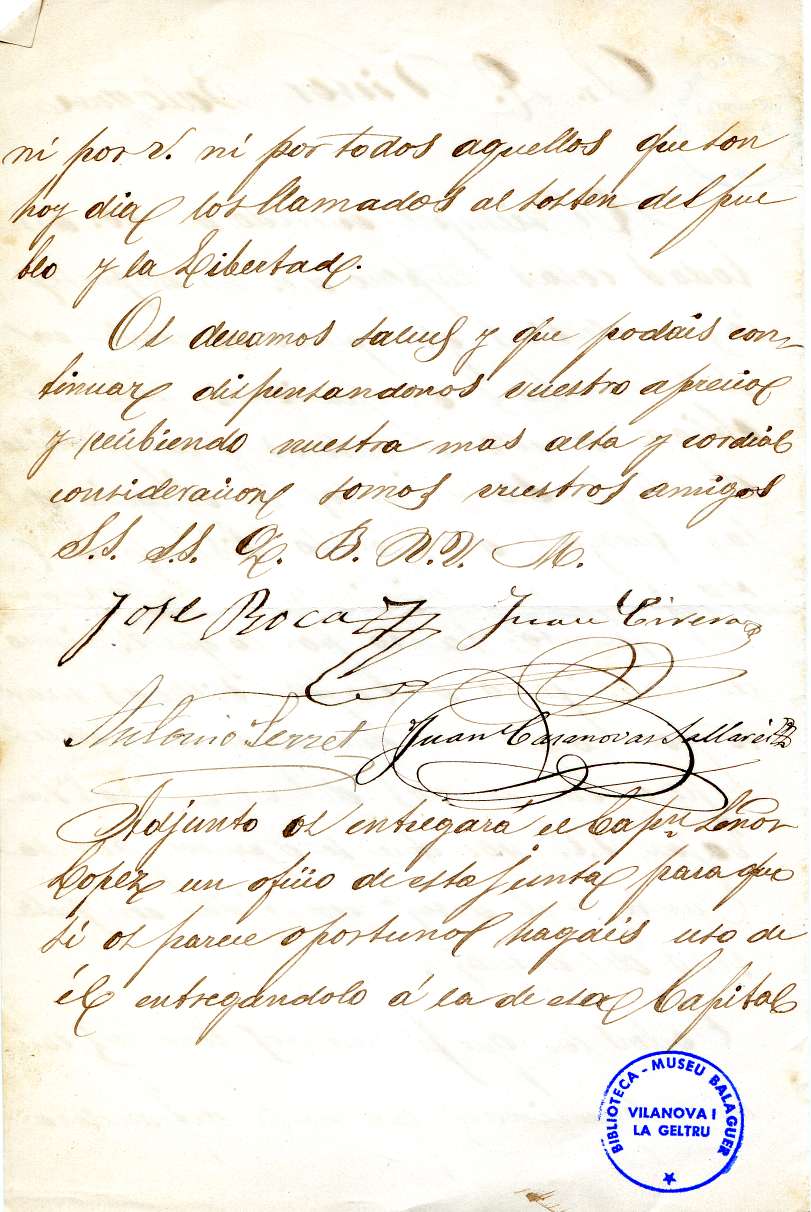 ni por V. ni por todos aquellos que son
hoy dia los llamados al sosten del pue
blo y la Libertad.
Os deseamos salud y que podais con-
tinuar dispensandonos vuestro aprecio
y recibiendo nuestra mas alta y cordial
consideracion somos vuestros amigos
S.S. S.S. Q. B. V.V. M.
Jose Roca Juan Civera
Antonio Serret Juan Casanovas Sallarés
Adjunto os entregará el Capn Señor
Lopez un oficio de esta junta para que
si os parece oportuno hagais uso de
él entregándolo á la de esa Capital
BIBLIOTECA - MUSEU BALAGUER
VILANOVA I
LA GELTRU